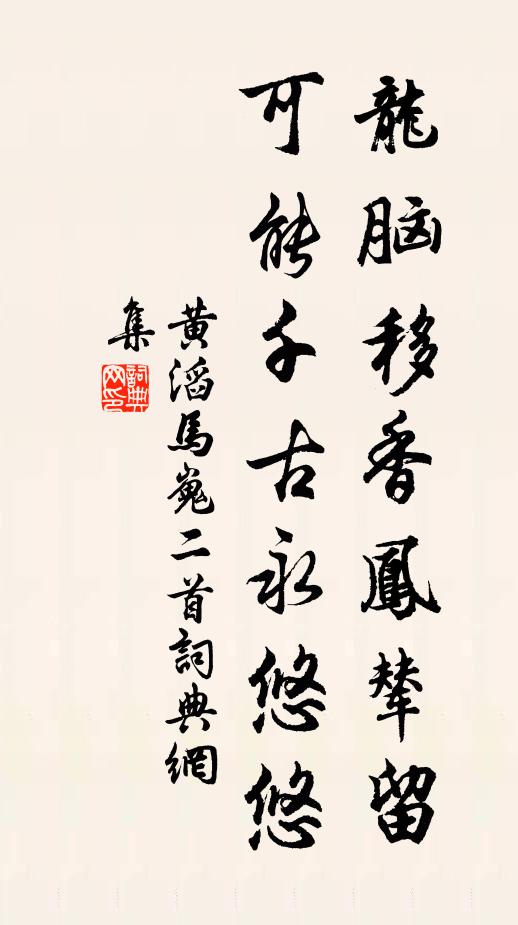 龍脑移香鳳輦留
可能千古永悠悠
黄滔馬嵬二首詞典網
集
詞典
网印